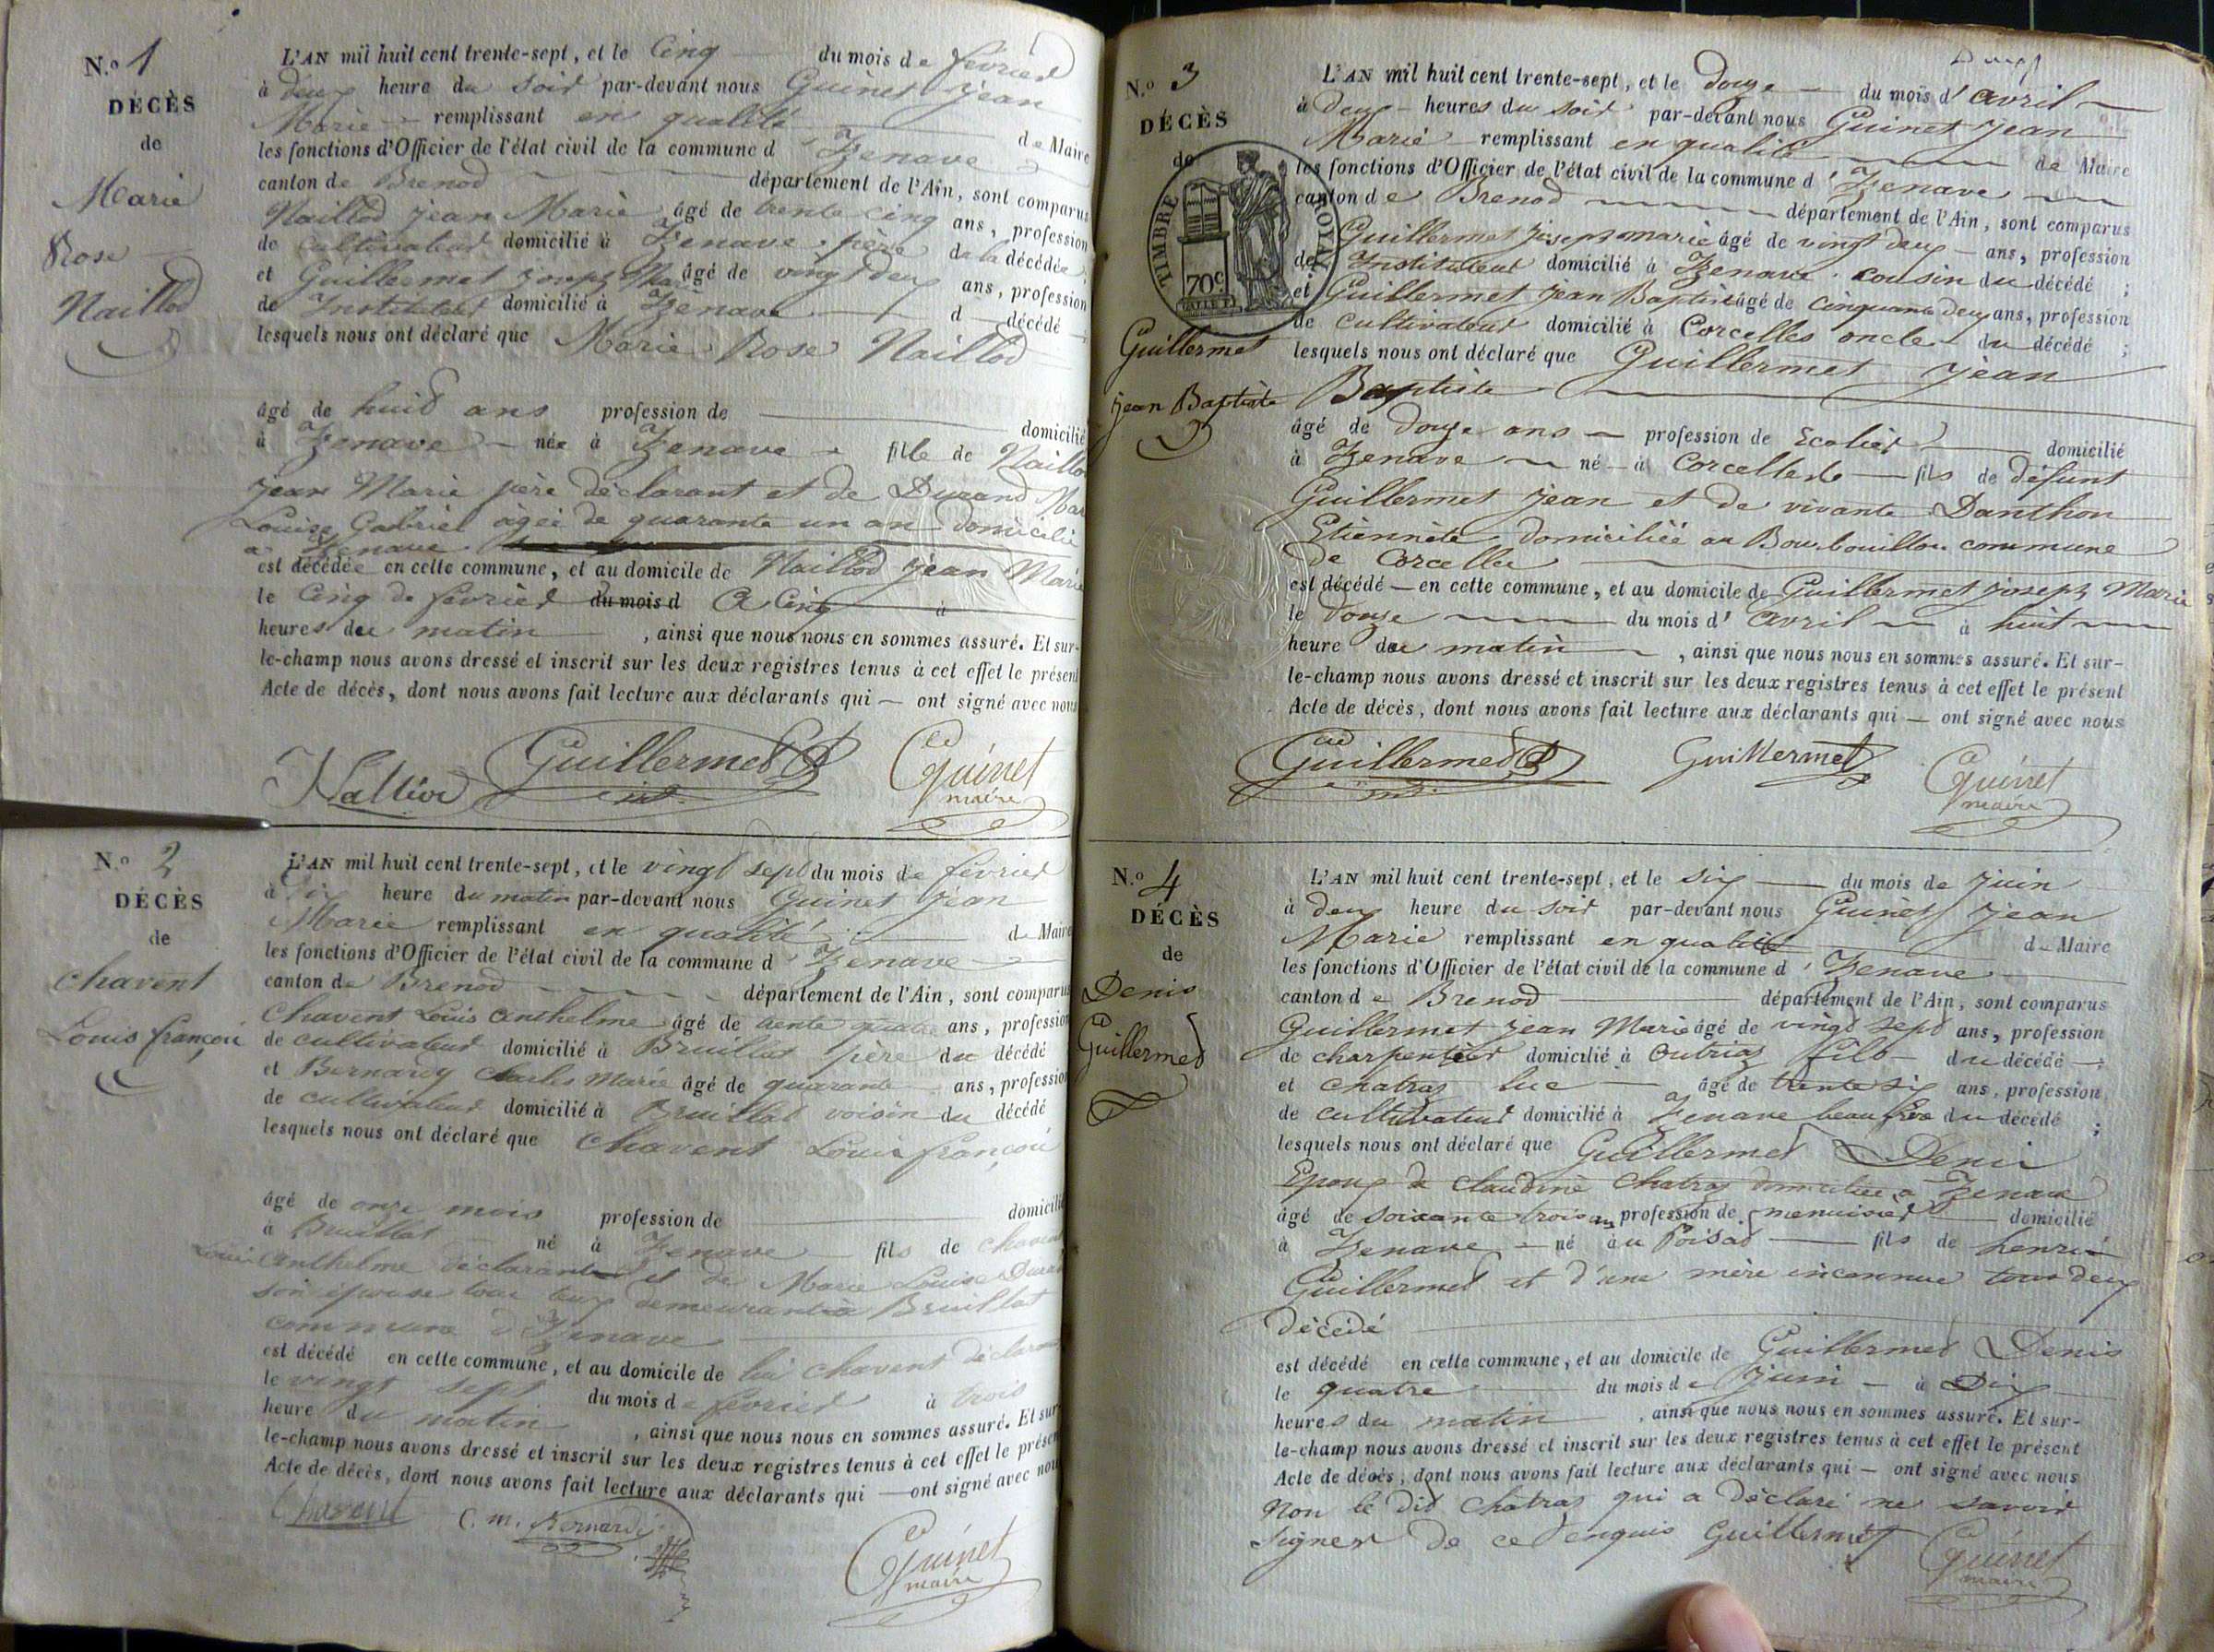 N.o 1
DÉCÈS
de
Marie
Rose
Naillod
L'AN mil huit cent trente-sept, et le Cinq du mois de février
à deux heure du soir par-devant nous Guinet Jean
Marie remplissant en qualité de Maire
les fonctions d'Officier de l'état civil de la commune d' Izenave
canton de Brenod département de l'Ain, sont comparus
Naillod jean Marie âgé de trente cinq ans, profession
de cultivateur domicilié à Izenave père de la décédée
et Guillermet joseph Marie âgé de vingt deux ans, profession
de Instituteur domicilié à Izenave d décédé ;
lesquels nous ont déclaré que Marie Rose Naillod
âgé de huit ans profession de domicilié
à Izenave née à Izenave fille de Naillod
jean Marie père déclarant et de Durand
Louise Gabriel agée de quarante un an domicilié
a Izenave
est décédée en cette commune, et au domicile de Naillod jean Marie
le Cinq de février du mois d à Cinq à
heures du matin , ainsi que nous nous en sommes assuré. Et sur-
le-champ nous avons dressé et inscrit sur les deux registres tenus à cet effet le présent
Acte de décès, dont nous avons fait lecture aux déclarants qui ont signé avec nous
Guillermet Guinet
maire
N.o 2
DÉCÈS
de
Chavent
Louis françoi
L'AN mil huit cent trente-sept, et le vingt sept du mois de février
à Dix heure du matin par-devant nous Guinet Jean
Marie remplissant en qualité de Maire
les fonctions d'Officier de l'état civil de la commune d' Izenave
canton de Brenod département de l'Ain, sont comparus
Chavent Louis Anthelme âgé de trente quatre ans, profession
de cultivateur domicilié à Bruillat père du décédé
et Bernardy Charles Marie âgé de quarante ans, profession
de cultivateur domicilié à Bruillat voisin du décédé
lesquels nous ont déclaré que Chavent Louis françoi
âgé de onze mois profession de domicilié
à Bruillat né à Izenave fils de Chavent
Louis Anthelme déclarant et de Marie Louise
son épouse tous deux demeurant a Bruillat
commune d'Izenave
est décédé en cette commune, et au domicile de lui Chavent déclarant
le vingt sept du mois de février à trois
heure du matin , ainsi que nous nous en sommes assuré. Et sur-
le-champ nous avons dressé et inscrit sur les deux registres tenus à cet effet le présent
Acte de décès, dont nous avons fait lecture aux déclarants qui ont signé avec nous
Chavent C. m. Bernardi Guinet
maire
N.o 3
DÉCÈS
de
TIMBRE ROYAL
70c
Guillermet
jean Baptiste
L'AN mil huit cent trente-sept, et le douze du mois d'avril
à deux heures du soir par-devant nous Guinet Jean
Marie remplissant en qualité de Maire
les fonctions d'Officier de l'état civil de la commune d' Izenave
canton de Brenod département de l'Ain, sont comparus
Guillermet joseph marie âgé de vingt deux ans, profession
de Instituteur domicilié à Izenave cousin du décédé ;
et Guillermet jean Baptiste âgé de cinquante deux ans, profession
de cultivateur domicilié à Corcelles oncle du décédé ;
lesquels nous ont déclaré que Guillermet jean
Baptiste
âgé de douze ans profession de Ecolier domicilié
à Izenave né à Corcelle fils de défunt
Guillermet jean et de vivante Danthon
Etiennete domiciliée au Bourbouillon commune
de Corcelle
est décédé en cette commune, et au domicile de Guillermet joseph Marie
le douze du mois d' avril à huit
heure du matin , ainsi que nous nous en sommes assuré. Et sur-
le-champ nous avons dressé et inscrit sur les deux registres tenus à cet effet le présent
Acte de décès, dont nous avons fait lecture aux déclarants qui ont signé avec nous
Guillermet Guillermet Guinet
maire
N.o 4
DÉCÈS
de
Denis
Guillermet
L'AN mil huit cent trente-sept, et le six du mois de juin
à deux heure du soir par-devant nous Guinet Jean
Marie remplissant en qualité de Maire
les fonctions d'Officier de l'état civil de la commune d' Izenave
canton de Brenod département de l'Ain, sont comparus
Guillermet jean Marie âgé de vingt sept ans, profession
de charpentier domicilié à Outriaz fils du décédé ;
et Chatraz luc âgé de trente six ans, profession
de cultivateur domicilié à Izenave beau frere du décédé ;
lesquels nous ont déclaré que Guillermet Denis
Epoux de Claudine Chatraz domiciliée a Izenave
âgé de soixante trois ans profession de menuisier domicilié
à Izenave né au Poisat fils de henri
Guillermet et d'une mère inconnue tous deux
décédé
est décédé en cette commune, et au domicile de Guillermet Denis
le quatre du mois de juin à Dix
heures du matin , ainsi que nous nous en sommes assuré. Et sur-
le-champ nous avons dressé et inscrit sur les deux registres tenus à cet effet le présent
Acte de décès, dont nous avons fait lecture aux déclarants qui ont signé avec nous
Non le dit Chatraz qui a déclaré ne savoir
signer de ce enquis Guillermet Guinet
maire